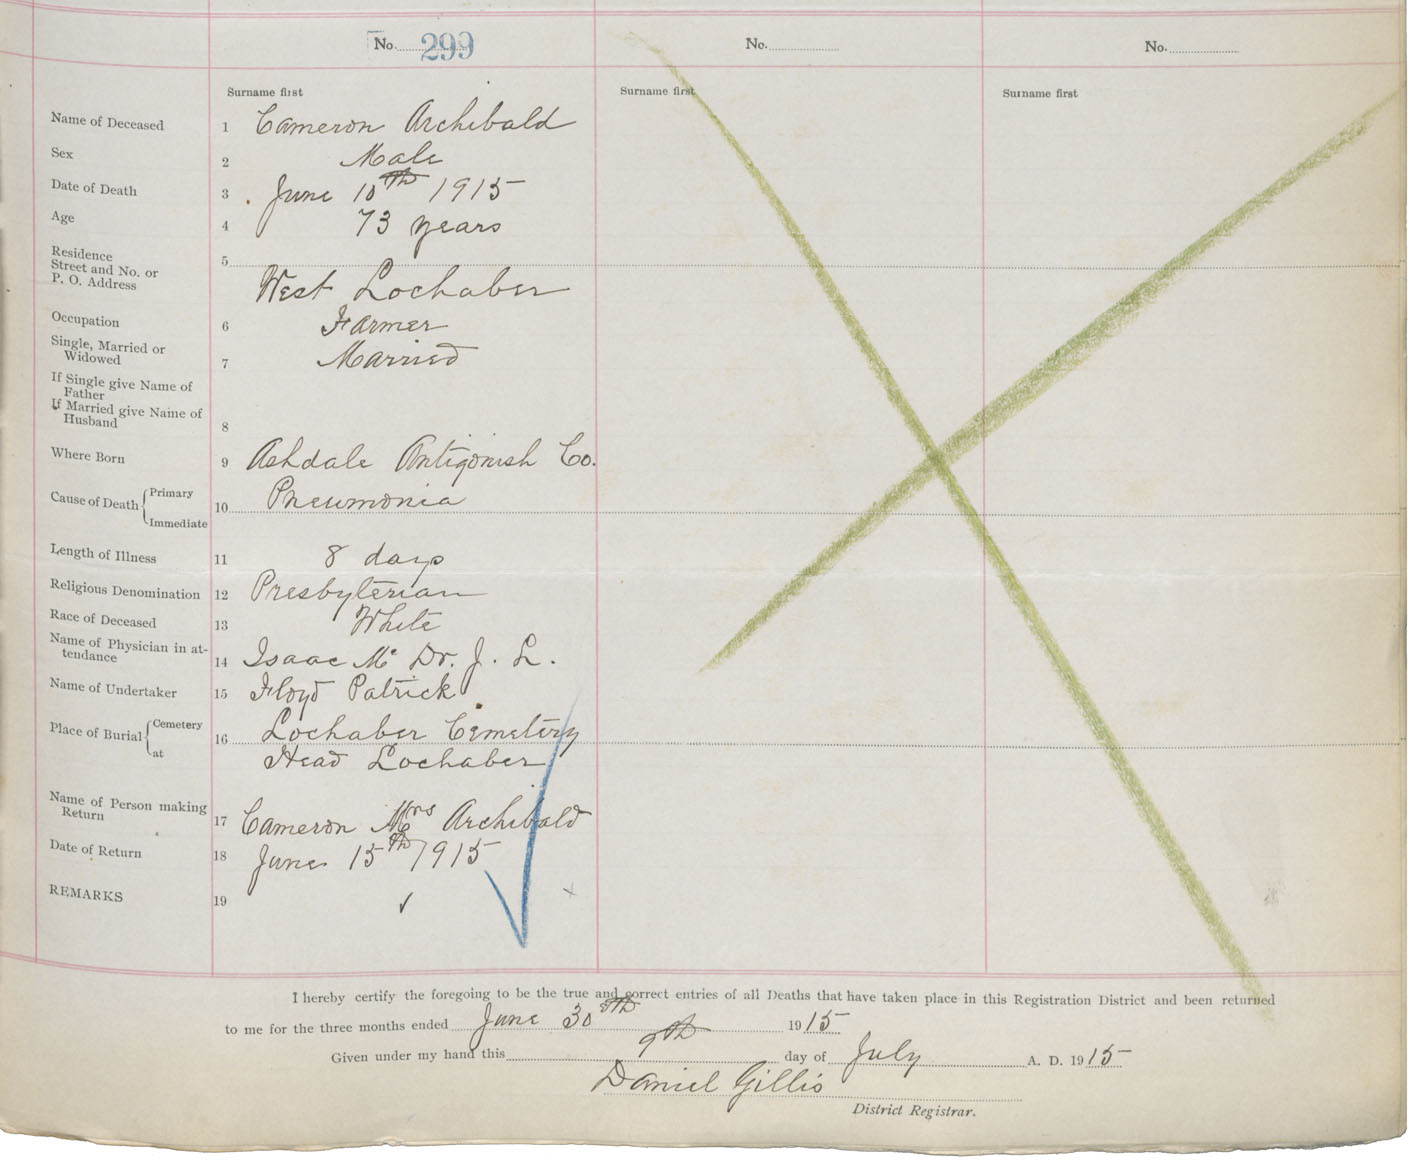 No. 299 No. No.
Surname first Surname first Surname first
Name of Deceased 1 Cameron Archibald
Sex 2 Male
Date of Death 3 June 10th 1915
Age 4 73 years
Residence
Street and No. or 5
P. O. Address West Lochaber
Occupation 6 Farmer
Single, Married or
Widowed 7 Married
If Single give Name of
Father
If Married give Name of
Husband 8
Where Born 9 Ashdale Antigonish Co.
Cause of Death Primary 10 Pneumonia
Immediate
Length of Illness 11 8 days
Religious Denomination 12 Presbyterian
Race of Deceased 13 White
Name of Physician in at-
tendance 14 Isaac Mc Dr. J. L.
Name of Undertaker 15 Floyd Patrick
Place of Burial Cemetery 16 Lochaber Cemetery
at Head Lochaber
Name of Person making
Return 17 Cameron Mrs Archibald
Date of Return 18 June 15th 1915
REMARKS 19 ✓
I hereby certify the foregoing to be the true and correct entries of all Deaths that have taken place in this Registration District and been returned
to me for the three months ended June 30th 1915
Given under my hand this 9th day of July A. D. 1915
Daniel Gillis
District Registrar.